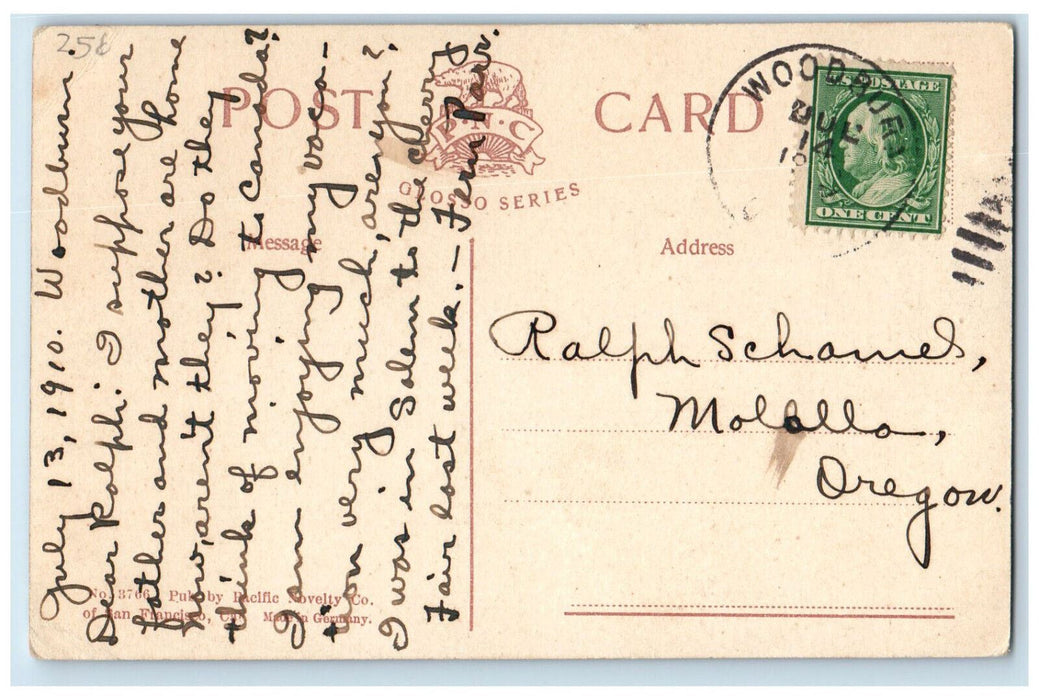 25¢
POST CARD
P·N·C
GLOSSO SERIES
Message
Address
WOODBURN
JUL
ONE CENT
July 13, 1910. Woodburn.
Dear Ralph: I suppose your
father and mother are home
now, aren't they? Do they
think of moving to Canada?
I am enjoying my vaca-
tion very much, are you?
I was in Salem to the cherry
Fair last week. — Fern Parr.
Ralph Schamel,
Molalla,
Oregon.
No. 3766 Pub. by Pacific Novelty Co.
of San Francisco, Cal. Made in Germany.